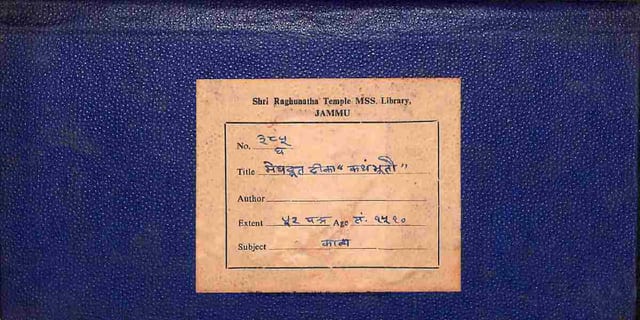 Shri Raghunatha Temple MSS. Library,
JAMMU
No. ३८५
घ
Title मेघदूत टीका “कथंभूतौ”
Author
Extent ५२ पत्र Age सं. १५१०
Subject काव्य